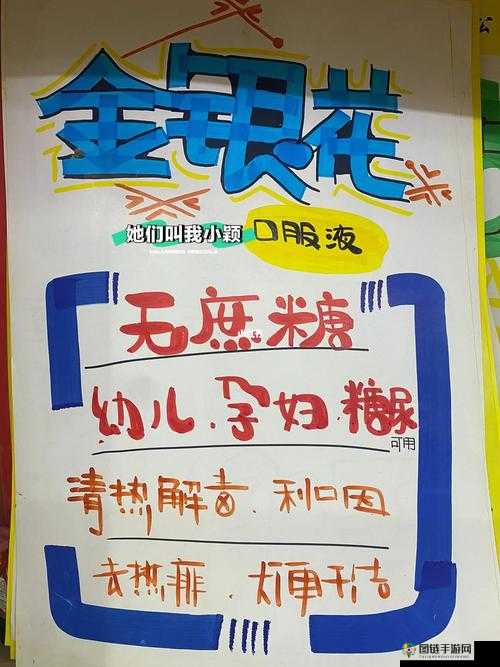 金银花
她们叫我小颖 口服液
无蔗糖
幼儿.孕妇.糖尿
可用
清热解毒.利口因
去热痱.大便干结
图链手游网